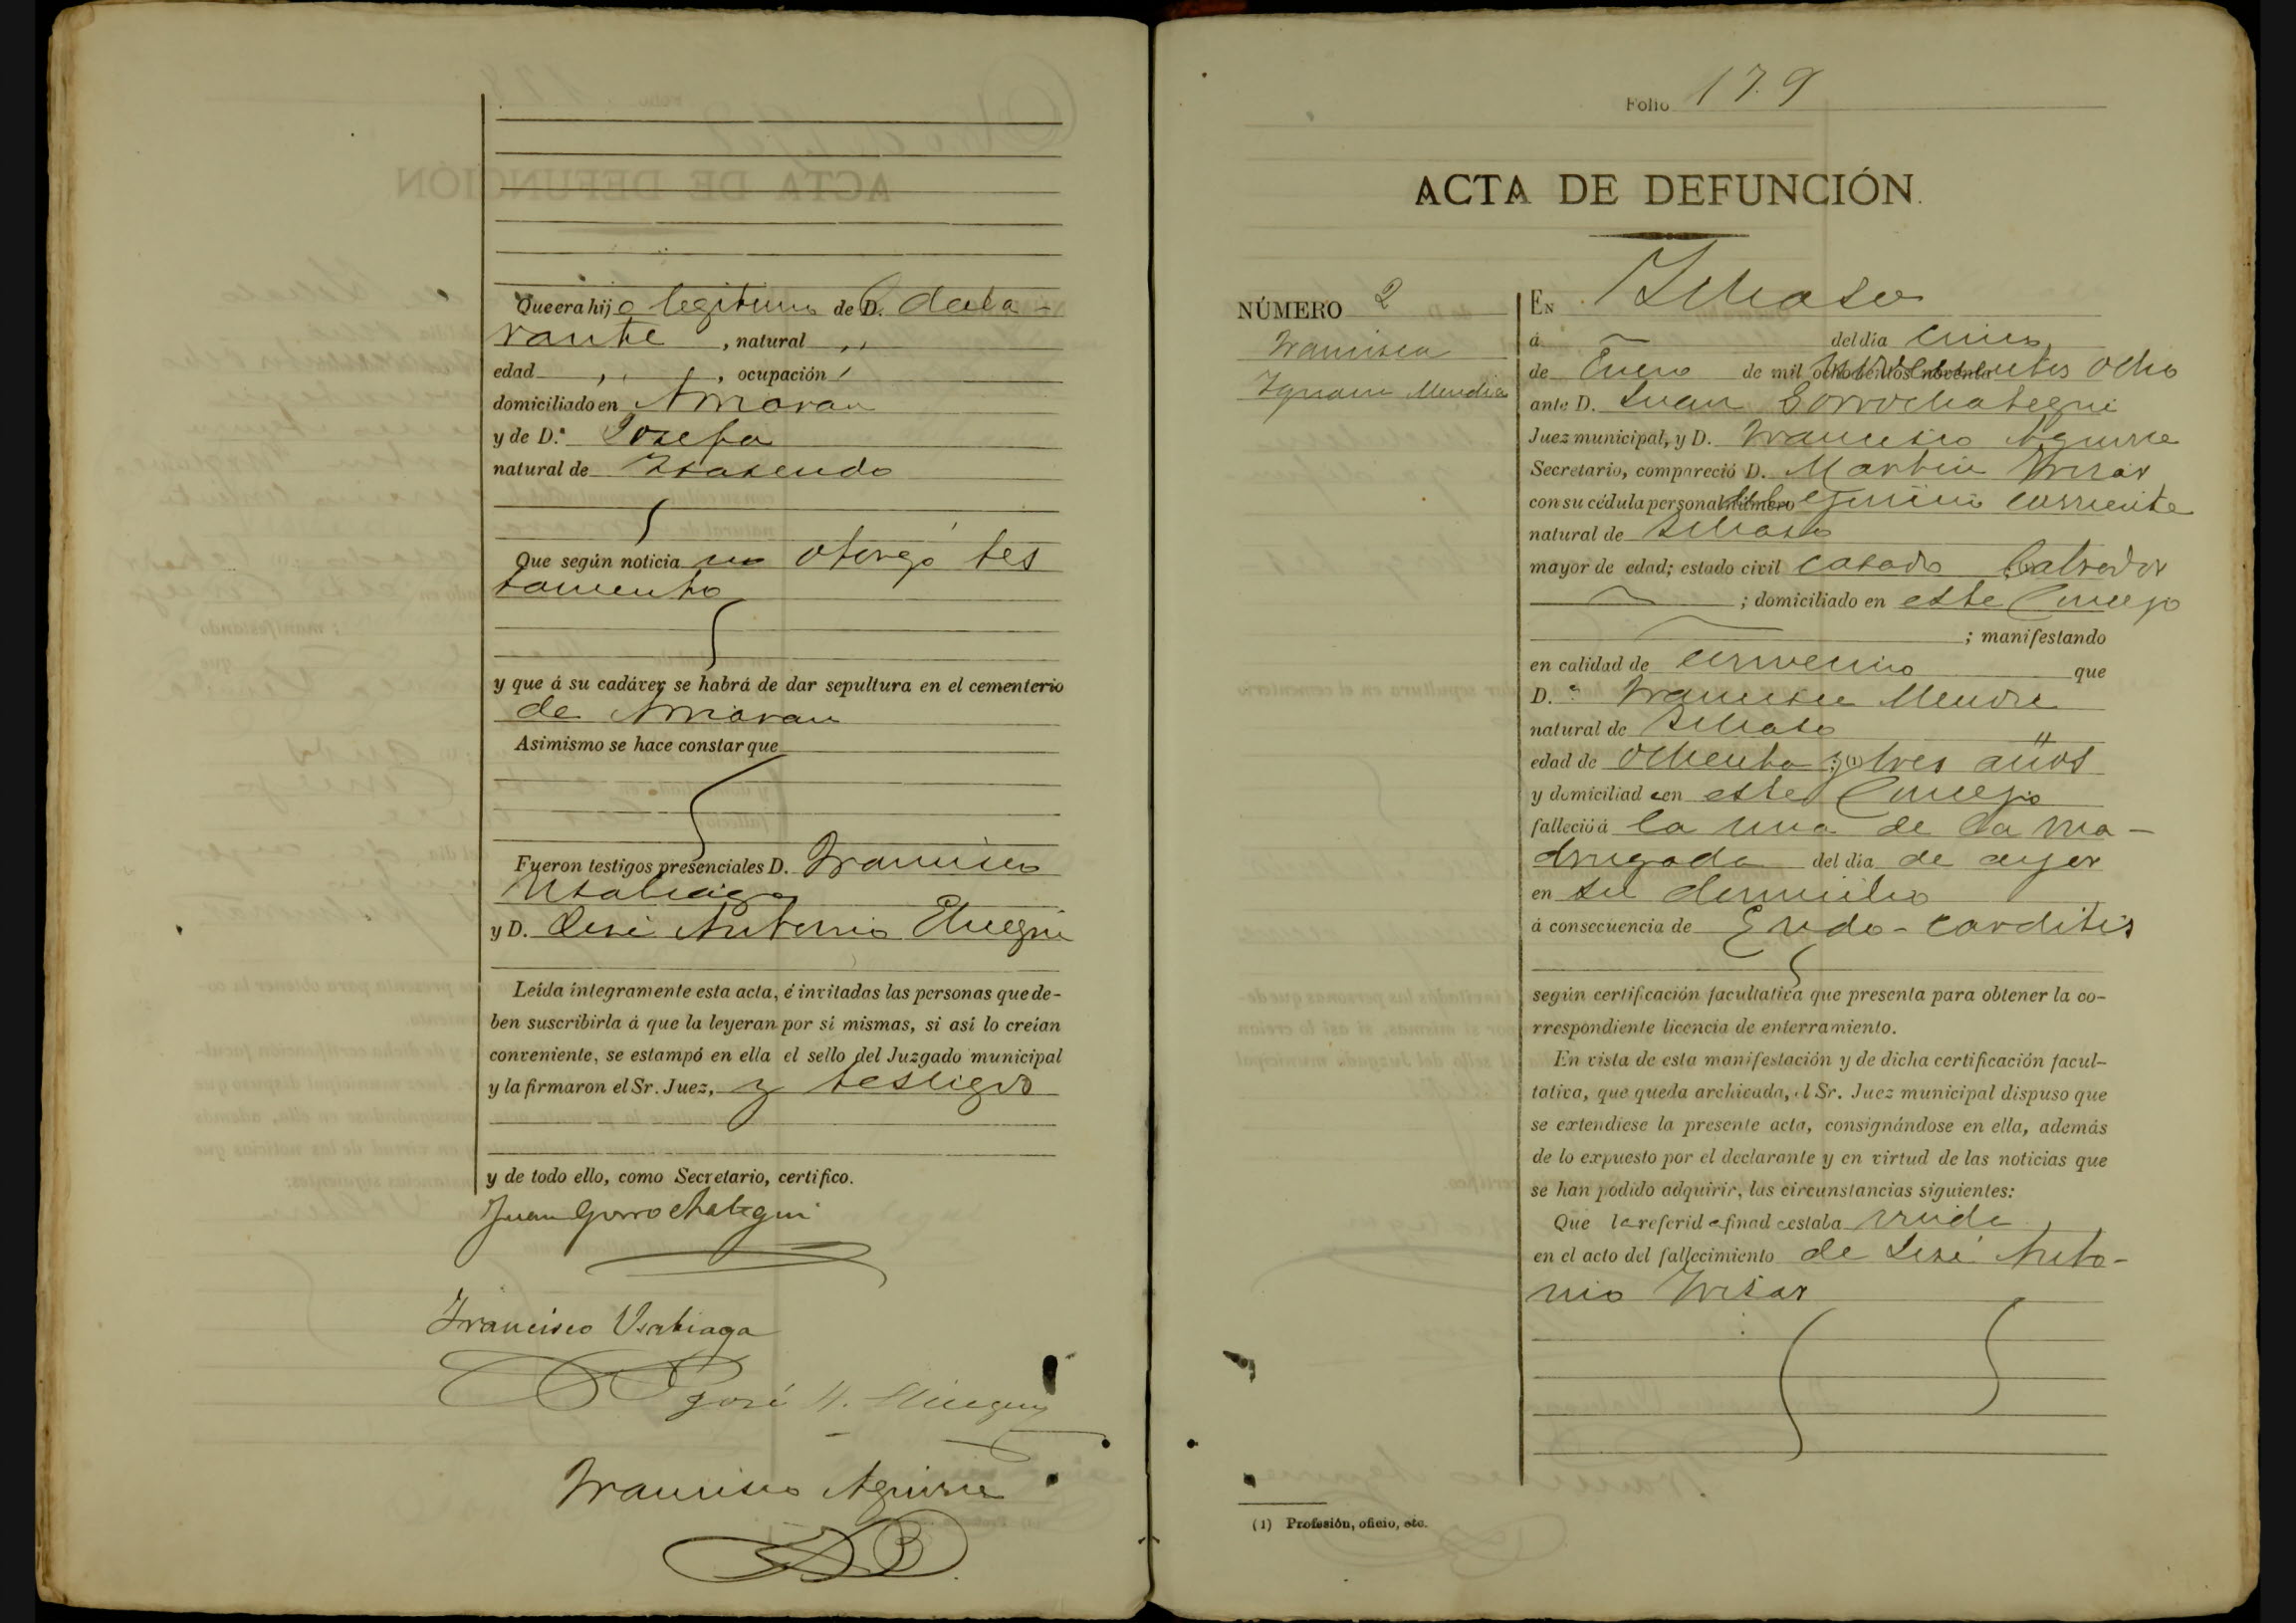 Que era hijo legitimo de D. decla-
rante, natural ,,
edad ,, , ocupación ,
domiciliado en Arriaran
y de D.ª Josefa
natural de Isasondo
Que según noticia no otorgó tes
tamento
y que á su cadáver se habrá de dar sepultura en el cementerio
de Arriaran
Asimismo se hace constar que
Fueron testigos presenciales D. Francisco
Usabiaga
y D. José Antonio
Leída íntegramente esta acta, é invitadas las personas que de-
ben suscribirla á que la leyeran por sí mismas, si así lo creían
conveniente, se estampó en ella el sello del Juzgado municipal
y la firmaron el Sr. Juez, y testigos
y de todo ello, como Secretario, certifico.
Juan Gorrochategui
Francisco Usabiaga
José A.
Francisco Aguirre
Folio 179
ACTA DE DEFUNCIÓN.
NÚMERO 2
Francisca
Ignacia Mendia
EN Ichaso
á del día cinco
de Enero de mil ochocientos noventa novecientos ocho
ante D. Juan Gorrochategui
Juez municipal, y D. Francisco Aguirre
Secretario, compareció D. Martin Irizar
con su cédula personal número del ejercicio corriente
natural de Ichaso
mayor de edad; estado civil casado labrador
; domiciliado en este Concejo
; manifestando
en calidad de convecino que
D.ª Francisca Mendia
natural de Ichaso
edad de ochenta y (1) tres años
y domiciliad en este Concejo
falleció á la una de la ma-
drugada del día de ayer
en su domicilio
á consecuencia de Endo-carditis
según certificación facultativa que presenta para obtener la co-
rrespondiente licencia de enterramiento.
En vista de esta manifestación y de dicha certificación facul-
tativa, que queda archivada, el Sr. Juez municipal dispuso que
se extendiese la presente acta, consignándose en ella, además
de lo expuesto por el declarante y en virtud de las noticias que
se han podido adquirir, las circunstancias siguientes:
Que la referida finada estaba viuda
en el acto del fallecimiento de José Anto-
nio Irizar
(1) Profesión, oficio, etc.